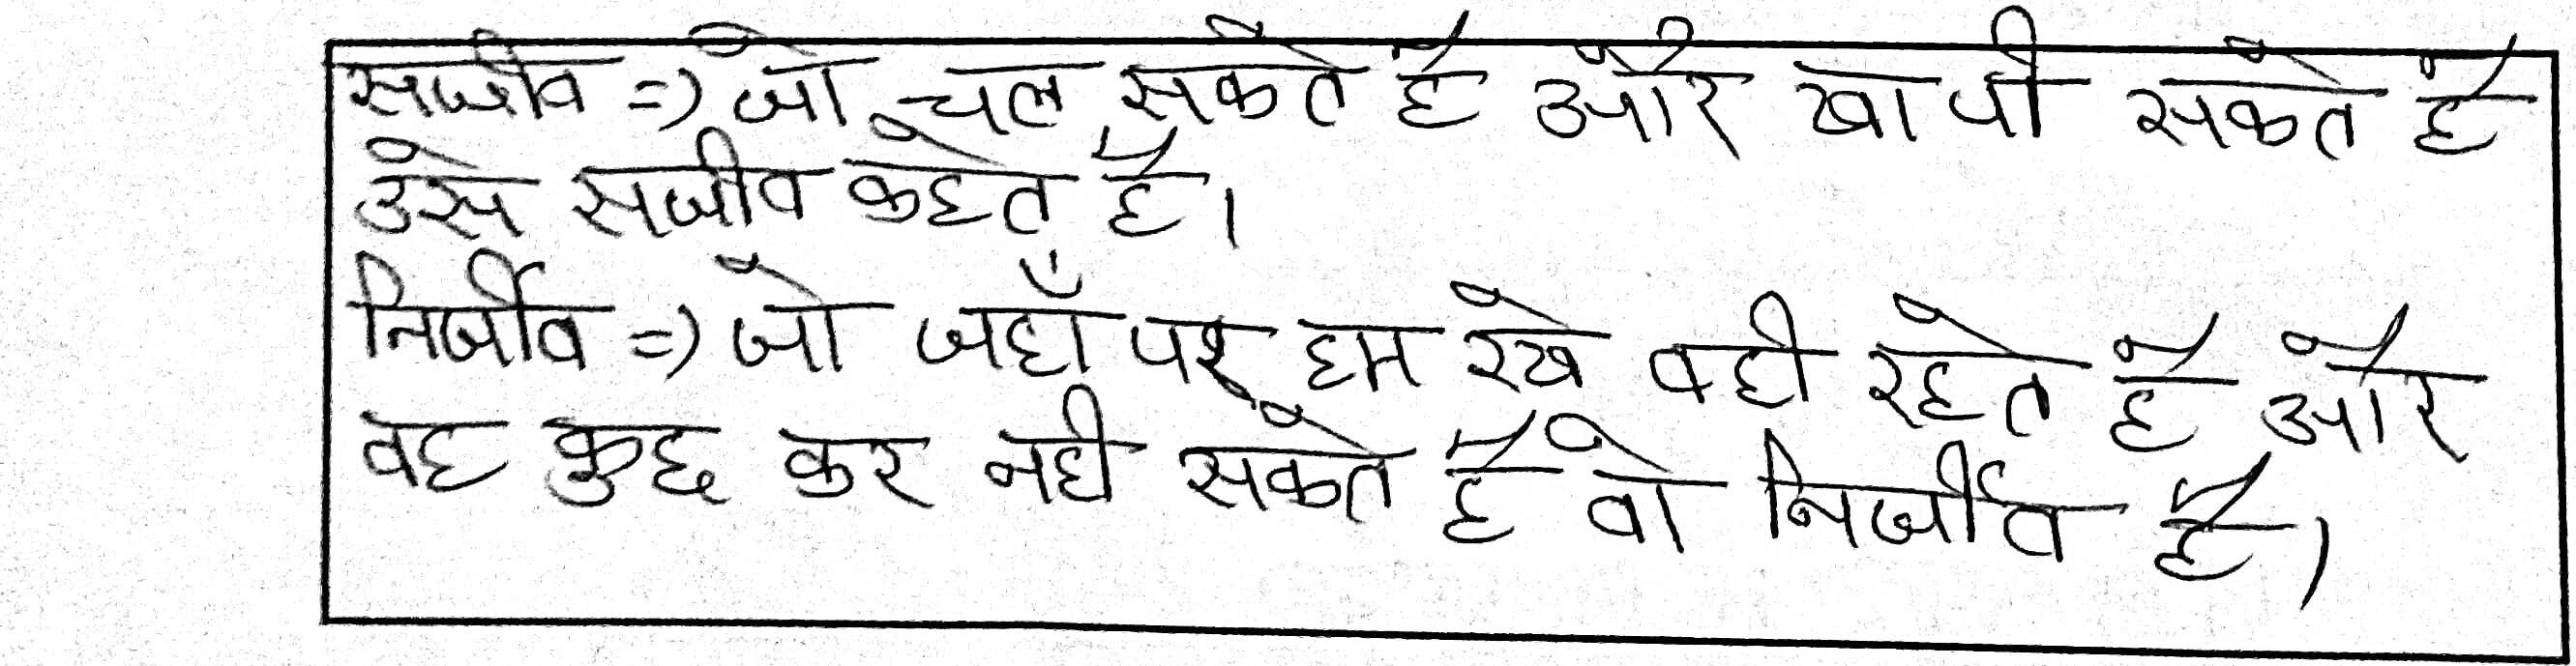 सजीव => जो चल सकते हैं और खा पी सकते हैं
उसे सजीव कहते हैं।
निर्जीव => जो जहाँ पर हम रखे वही रहते है और
वह कुछ कर नही सकते हैं वो निर्जीव हैं।